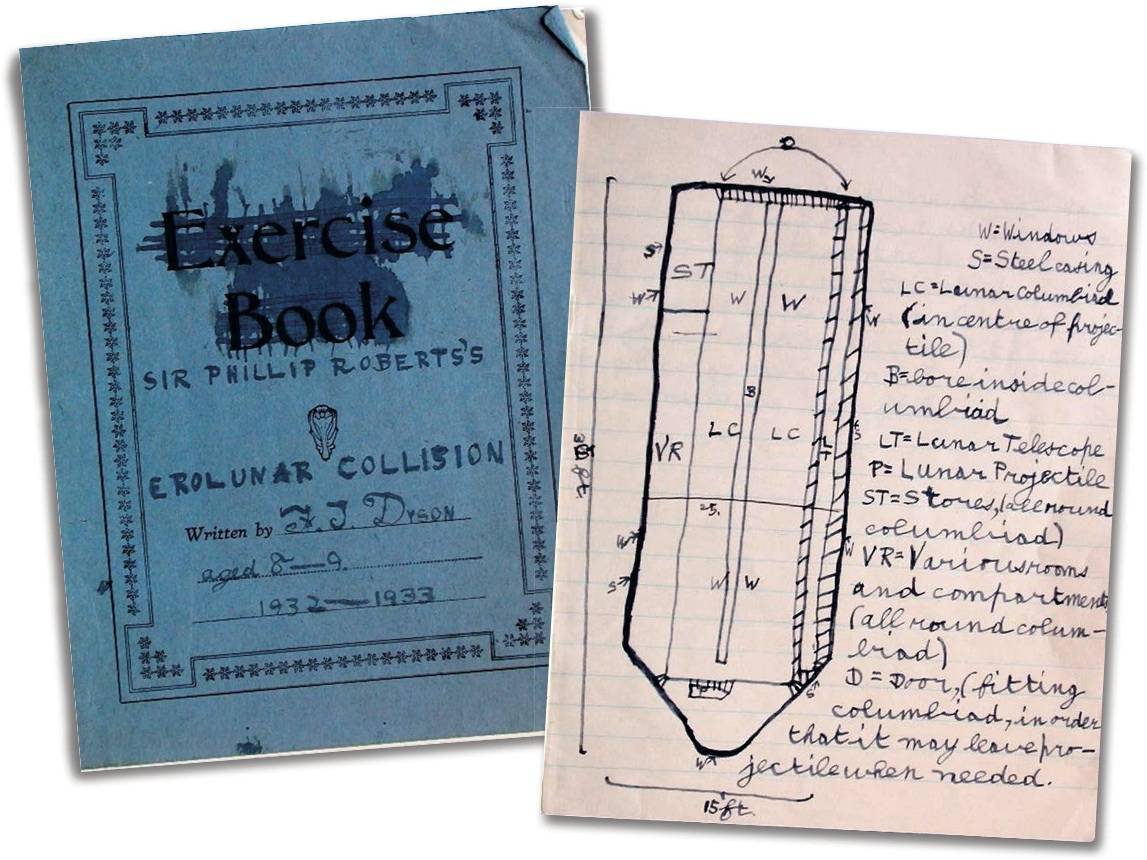 Exercise
Book
SIR PHILLIP ROBERTS'S
EROLUNAR COLLISION
Written by F. J. Dyson
aged 8—9.
1932—1933
D
W
S
ST
W
W
W
W
B
LC
LC
LT
S
VR
25.
W
W
S
W
W
S
W
15 ft.
W=Windows
S=Steel casing
LC=Lunar Columbiad
(in centre of projec-
tile)
B=bore inside col-
umbiad
LT=Lunar Telescope
P=Lunar Projectile
ST=Stores, (all round
columbiad)
VR=Various rooms
and compartments
(all round colum-
biad)
D=Door, (fitting
columbiad, in order
that it may leave pro-
jectile when needed.